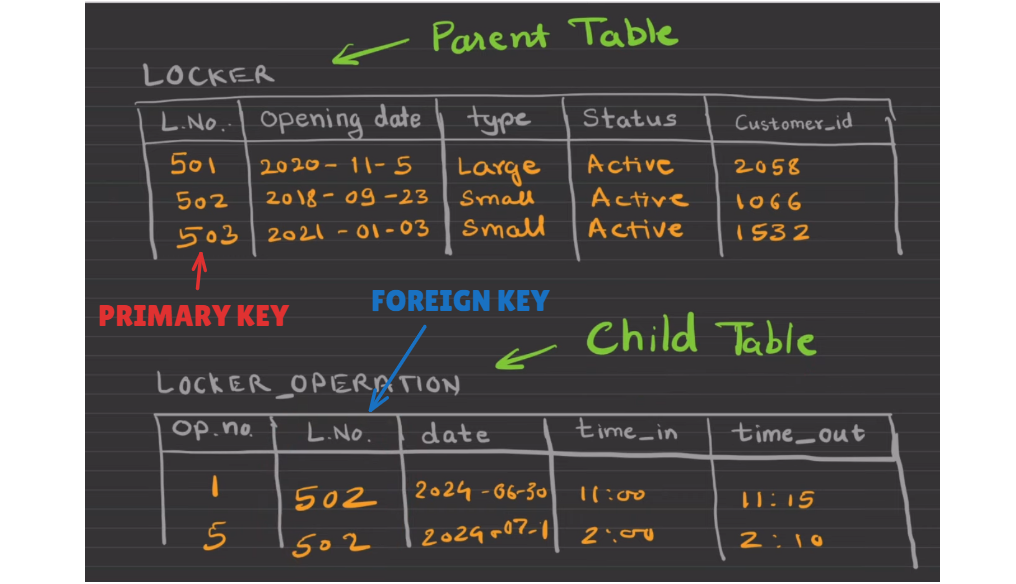 Parent Table
LOCKER
L.No. Opening date type Status Customer_id
501 2020-11-5 Large Active 2058
502 2018-09-23 Small Active 1066
503 2021-01-03 Small Active 1532
PRIMARY KEY
FOREIGN KEY
Child Table
LOCKER_OPERATION
Op.no. L.No. date time_in time_out
1 502 2024-06-30 11:00 11:15
5 502 2024-07-1 2:00 2:10